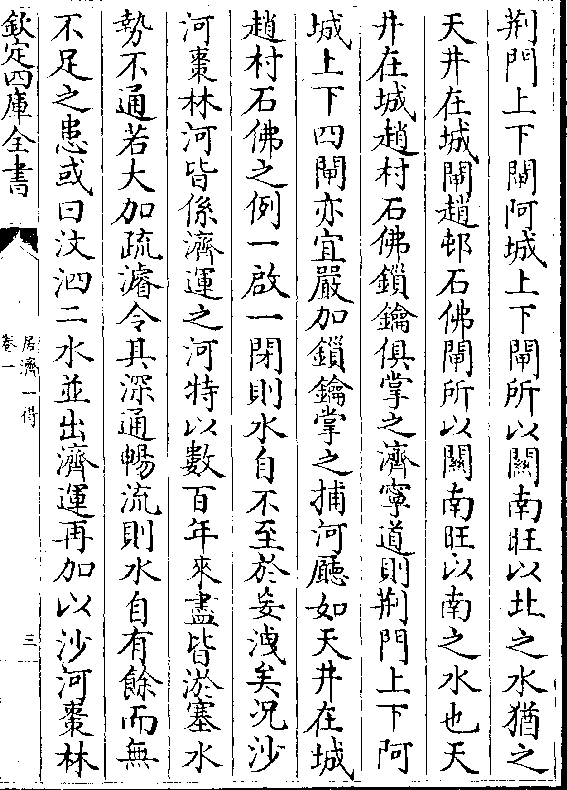 荆門上下閘阿城上下閘所以關南旺以北之水猶之
天井在城閘趙邨石佛閘所以關南旺以南之水也天
井在城趙村石佛鎖鑰俱掌之濟寧道則荆門上下阿
城上下四閘亦宜嚴加鎖鑰掌之捕河廳如天井在城
趙村石佛之例一啟一閉則水自不至於妄洩矣况沙
河棗林河皆係濟運之河特以數百年來盡皆淤塞水
勢不通若大加疏濬令其深通暢流則水自有餘而無
不足之患或曰汶泗二水並出濟運再加以沙河棗林
欽定四庫全書
居濟一得
卷一
三